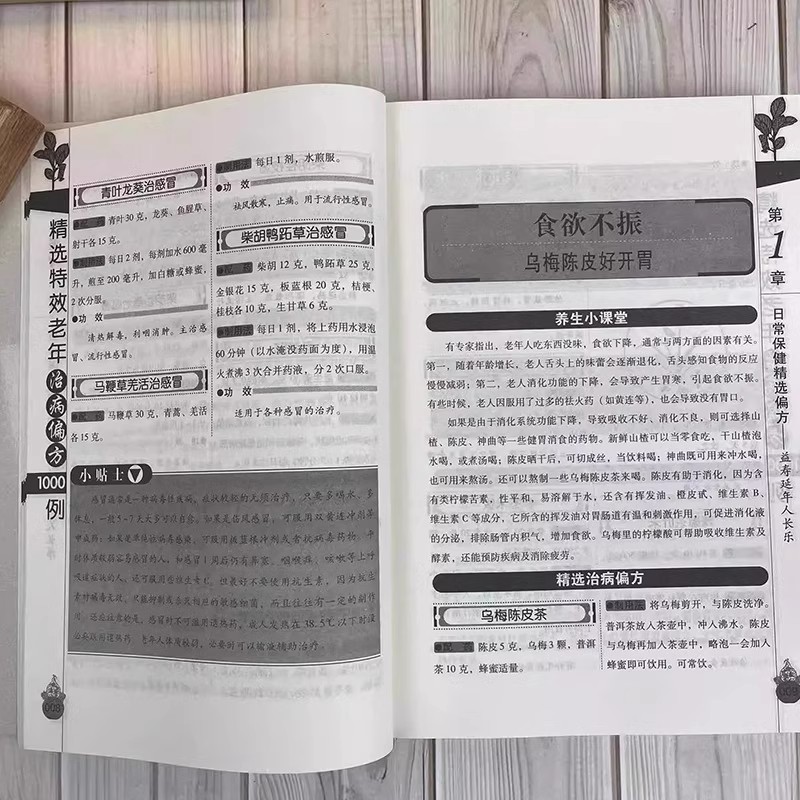 精选特效老年治病偏方1000例
青叶龙葵治感冒
青叶30克，龙葵、鱼腥草、
射干各15克。
每日2剂，每剂加水600毫
升，煎至200毫升，加白糖或蜂蜜，
2次分服。
●功 效
清热解毒，利咽消肿。主治感
冒、流行性感冒。
马鞭草羌活治感冒
马鞭草30克，青蒿、羌活
各15克。
每日1剂，水煎服。
●功 效
祛风散寒，止痛。用于流行性感冒。
柴胡鸭跖草治感冒
●配 药 柴胡12克，鸭跖草25克，
金银花15克，板蓝根20克，桔梗、
桂枝各10克，生甘草6克。
●制用法 每日1剂，将上药用水浸泡
60分钟（以水淹没药面为度），用温
火煮沸3次合并药液，分2次口服。
●功 效
适用于各种感冒的治疗。
小贴士
感冒通常是一种病毒性疾病，症状较轻的无须治疗，只要多喝水、多
休息，一般5~7天大多可以自愈。如果是伤风感冒，可服用双黄连冲剂等
中成药；如果是流行性病毒感染，可服用板蓝根冲剂或者抗病毒药物；
009
第1章
日常保健精选偏方——益寿延年人长乐
食欲不振
乌梅陈皮好开胃
养生小课堂
有专家指出，老年人吃东西没味，食欲下降，通常与两方面的因素有关。
第一，随着年龄增长，老人舌头上的味蕾会逐渐退化，舌头感知食物的反应
慢慢减弱；第二，老人消化功能的下降，会导致产生胃寒，引起食欲不振。
有些时候，老人因服用了过多的祛火药（如黄连等），也会导致没有胃口。
如果是由于消化系统功能下降，导致吸收不好、消化不良，则可选择山
楂、陈皮、神曲等一些健胃消食的药物。新鲜山楂可以当零食吃，干山楂泡
水喝，或煮汤喝；陈皮晒干后，可切成丝，当饮料喝；神曲既可用来冲水喝，
也可用来熬汤。还可以熬制一些乌梅陈皮茶来喝。陈皮有助于消化，因为含
有类柠檬苦素，性平和，易溶解于水，还含有挥发油、橙皮甙、维生素B、
维生素C等成分，它所含的挥发油对胃肠道有温和刺激作用，可促进消化液
的分泌，排除肠管内积气，增加食欲。乌梅里的柠檬酸可帮助吸收维生素及
酵素，还能预防疾病及消除疲劳。
精选治病偏方
乌梅陈皮茶
●配 药 陈皮5克，乌梅3颗，普洱
茶10克，蜂蜜适量。
●制用法 将乌梅剪开，与陈皮洗净。
普洱茶放入茶壶中，冲入沸水。陈皮
与乌梅再加入茶壶中，略泡一会加入
蜂蜜即可饮用。可常饮。